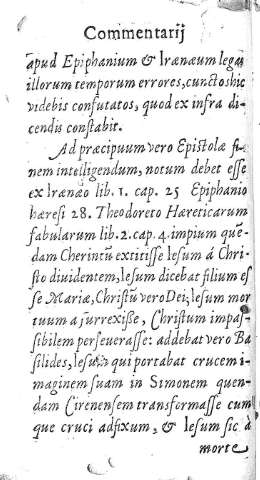 Commentarij
apud Epiphanium & Irænæum legas
illorum temporum errores, cunctos hic
videbis confutatos, quod ex infra di-
cendis constabit.
Ad præcipuum vero Epistolæ fi-
nem intelligendum, notum debet esse
ex Irænæo lib. 1. cap. 25 Epiphanio
hæresi 28. Theodoreto Hæreticarum
fabularum lib. 2. cap. 4. impium quē-
dam Cherintū extitisse Iesum á Chri-
sto diuidentem, Iesum dicebat filium es-
se Mariæ, Christū vero Dei; Iesum mor
tuum a surrexisse, Christum impas-
sibilem perseuerasse: addebat vero Ba
silides, Iesum qui portabat crucem i-
maginem suam in Simonem quen-
dam Cirenensem transformasse eum
que cruci adfixum, & Iesum sic á
morte